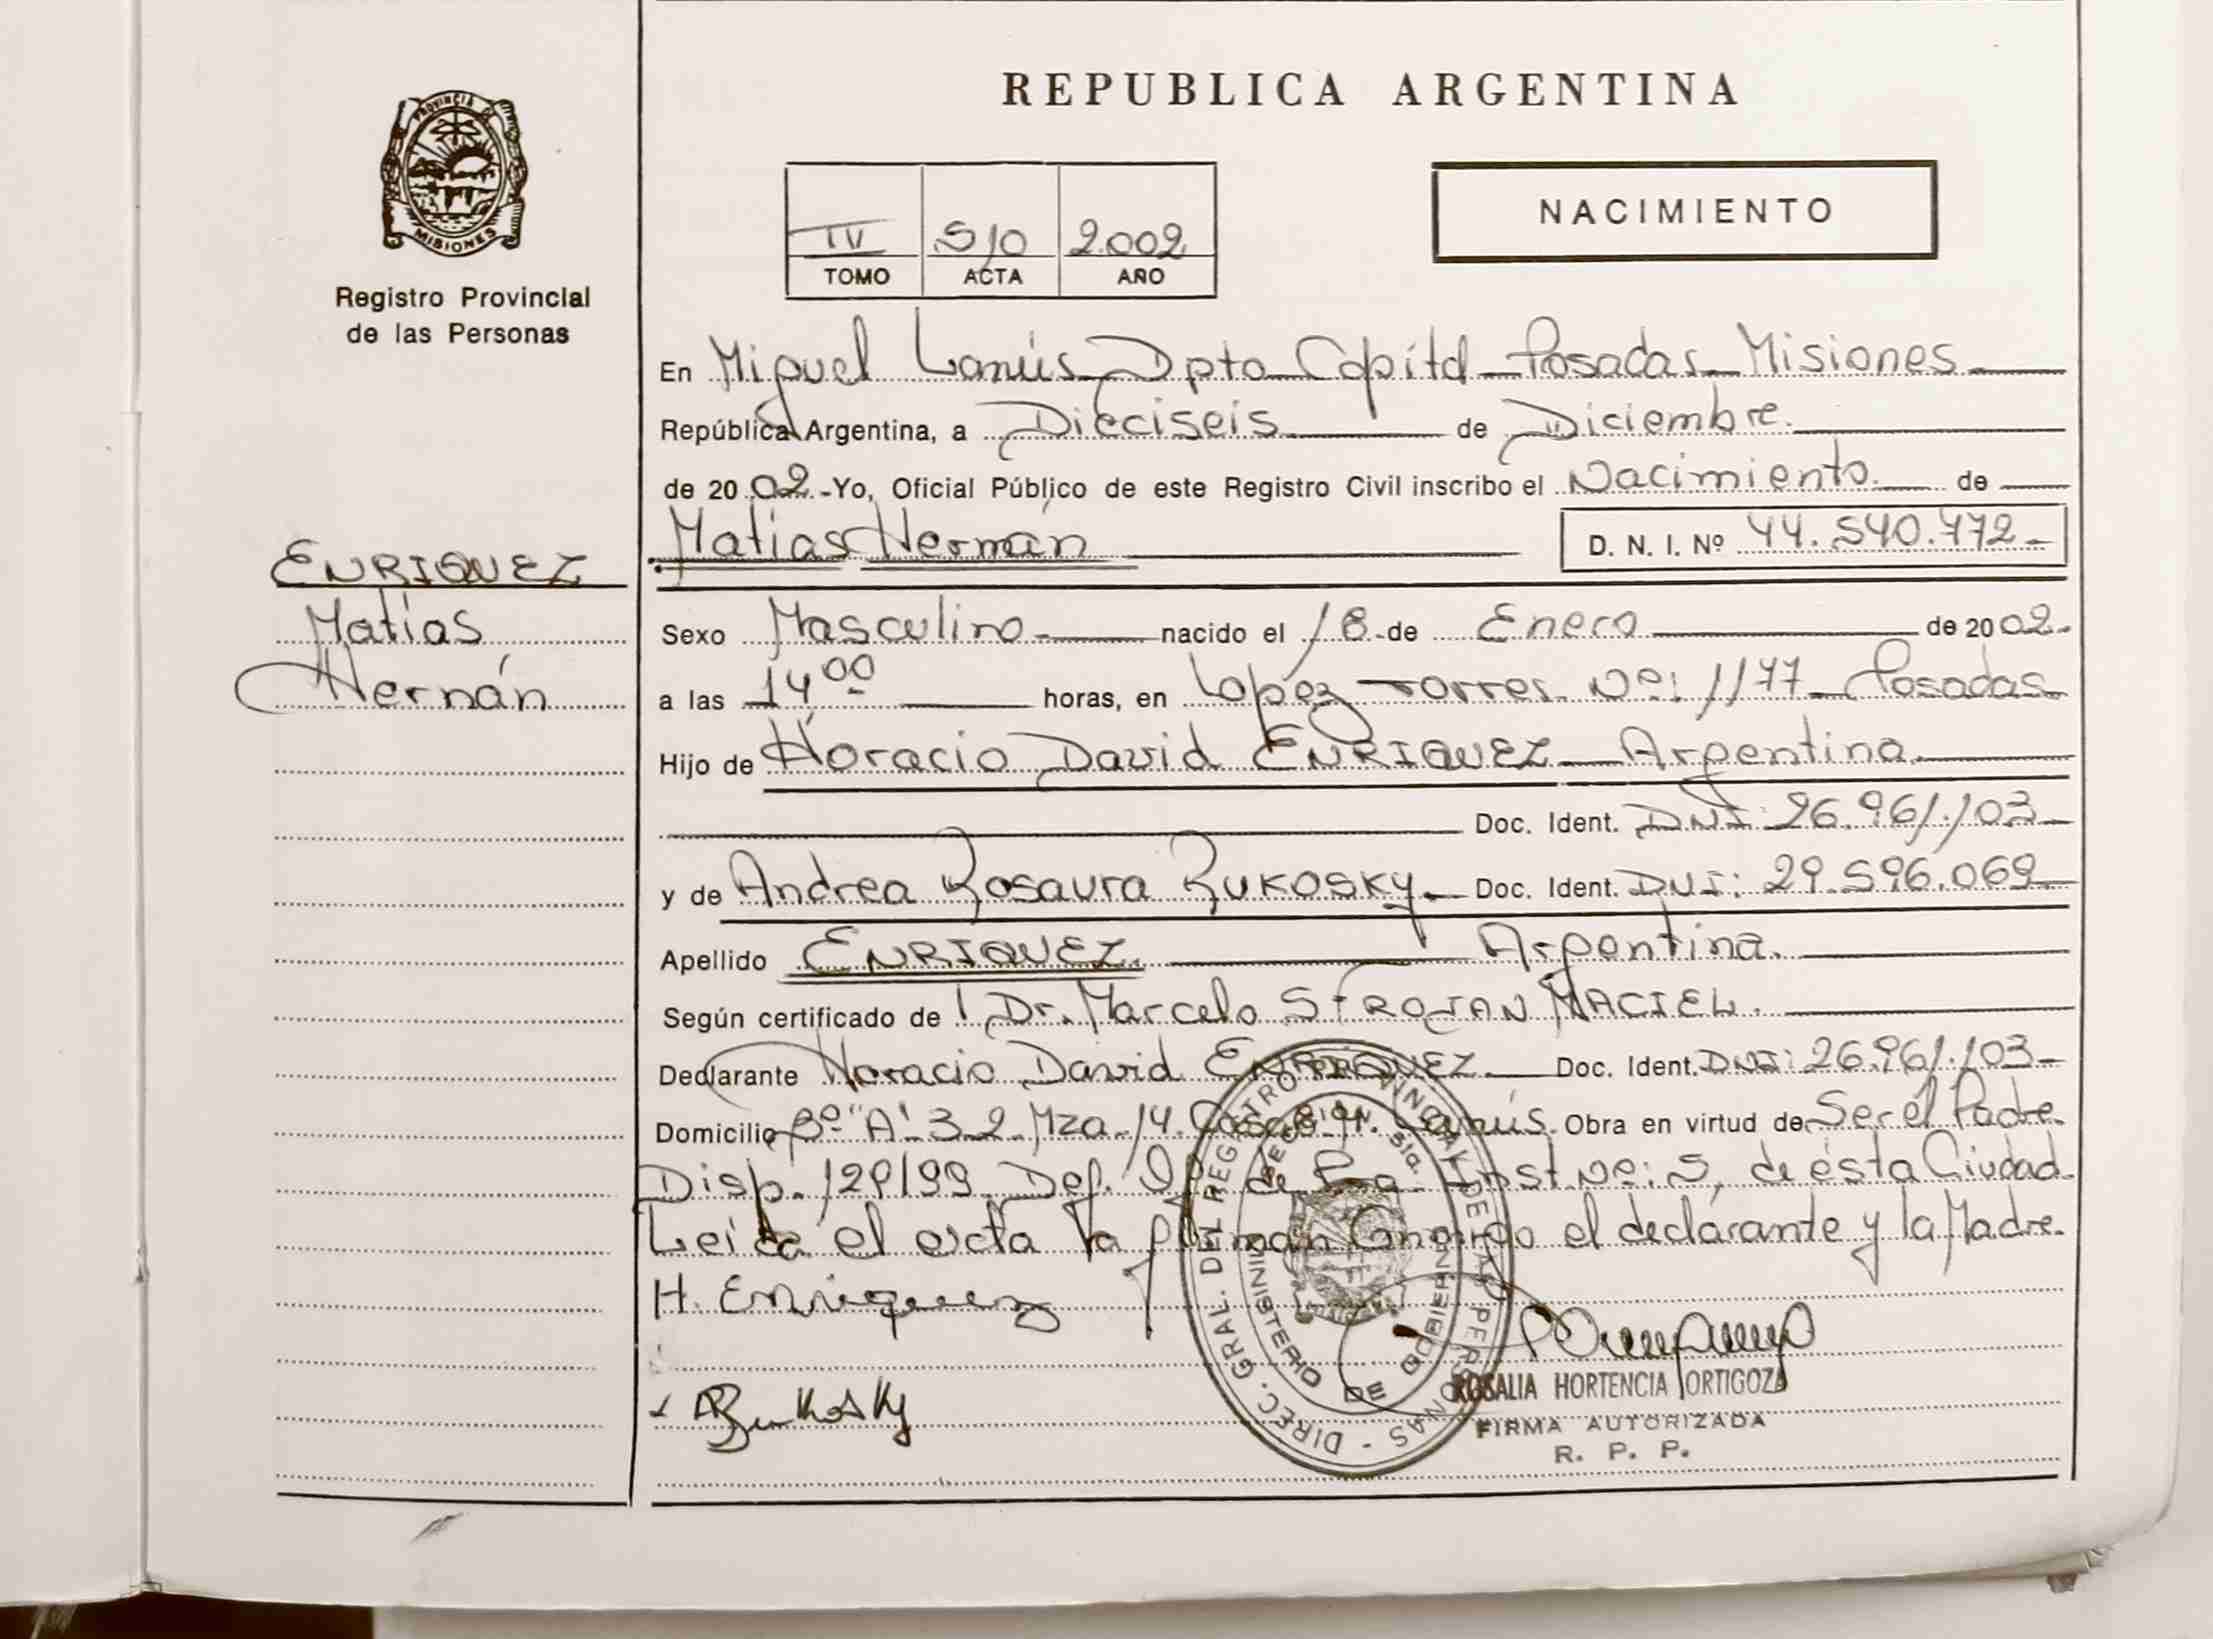 REPUBLICA ARGENTINA
PROVINCIA DE
MISIONES
Registro Provincial
de las Personas
NACIMIENTO
IV 510 2.002
TOMO ACTA AÑO
En Miguel Lanús Dpto Capital Posadas Misiones
República Argentina, a Dieciseis de Diciembre.
de 2002.-Yo, Oficial Público de este Registro Civil inscribo el Nacimiento de
Matías Hernán D. N. I. Nº 44.540.772
ENRIQUEZ
Matías
Hernán
Sexo Masculino nacido el 18 de Enero de 2002.
a las 14 00 horas, en Lopez Torres Nº: 1177 Posadas
Hijo de Horacio David ENRIQUEZ Argentina
Doc. Ident. DNI: 26.961.103
y de Andrea Rosaura Rukosky Doc. Ident. DNI: 29.596.069
Apellido ENRIQUEZ Argentina.
Según certificado de Dr. Marcelo STROJAN MACIEL.
Declarante Horacio David ENRIQUEZ Doc. Ident. DNI: 26.961.103
Domicilio Bº "A" 3-2 Mza 14 Lanús. Obra en virtud de Ser el Padre
Disp. 129/99 Def. de Inst Nº: 5, de ésta Ciudad
Leída el acta la firman Conmigo el declarante y la Madre.
H. Enriquez
Rukosky
DIREC. GRAL. DEL REGISTRO PROVINCIAL DE LAS PERSONAS
MINISTERIO DE GOBIERNO
ROSALIA HORTENCIA ORTIGOZA
FIRMA AUTORIZADA
R. P. P.